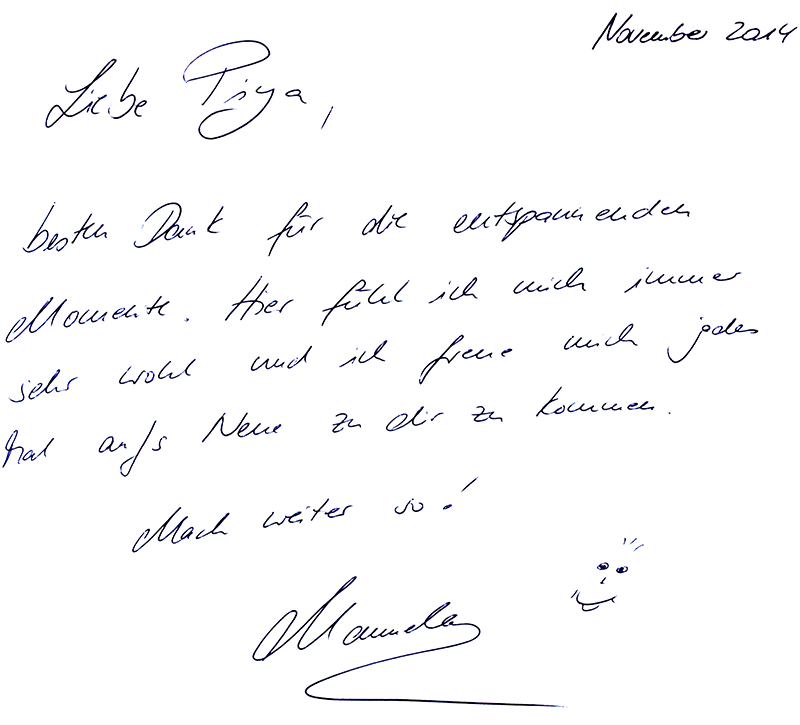 November 2014
Liebe Priya,
besten Dank für die entspannenden
Momente. Hier fühl ich mich immer
sehr wohl und ich freue mich jedes
Mal aufs Neue zu dir zu kommen.
Mach weiter so!